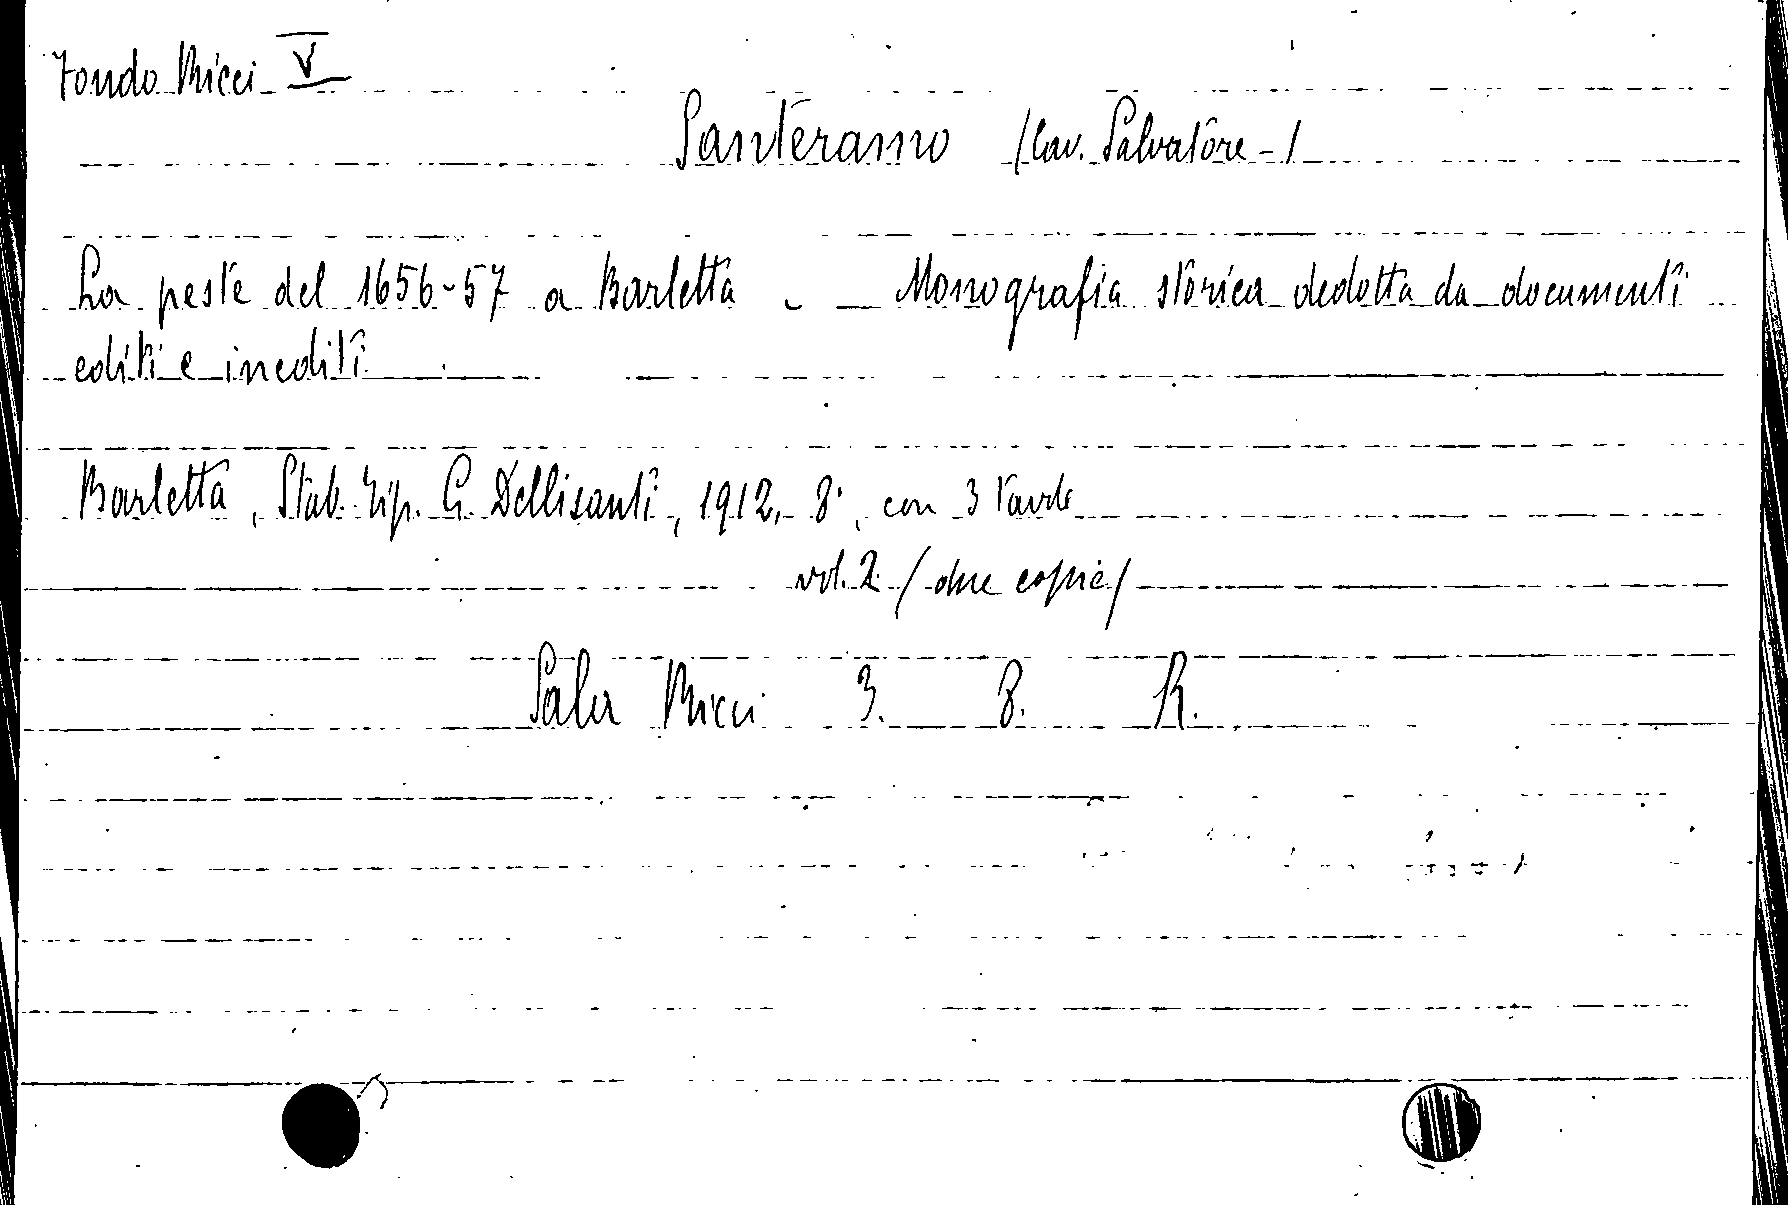 Fondo Ricci V
Santeramo (Cav. Salvatore-)
La peste del 1656-57 a Barletta. — Monografia storica dedotta da documenti
editi e inediti
Barletta, Stab. tip. G. Dellisanti, 1912, 8°, con 3 tavole
vol. 2 (due copie)
Sala Ricci 3. 8. R.